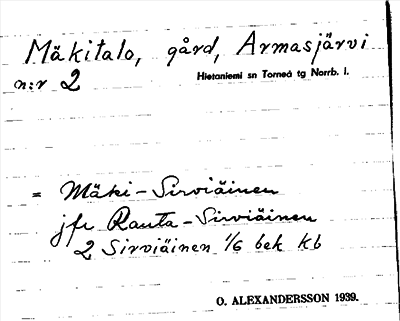 Mäkitalo, gård, Armasjärvi
n:r 2 Hietaniemi sn Torneå tg Norrb. l.
= Mäki-Sirviäinen
jfr Rauta-Sirviäinen
2 Sirviäinen 1/6 bek kb
O. ALEXANDERSSON 1939.